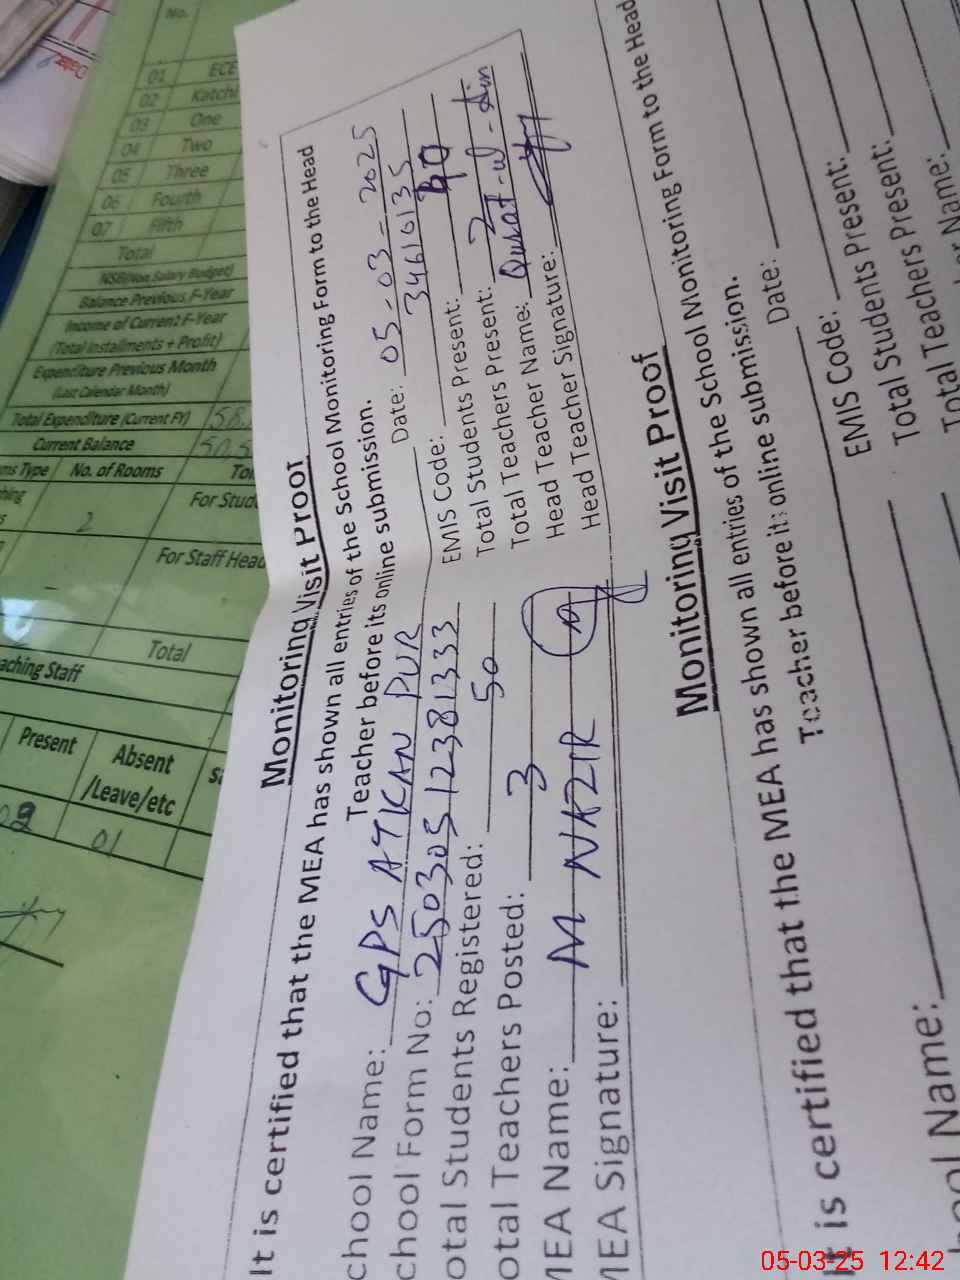 No.
01 ECE
02 Katchi
03 One
04 Two
05 Three
06 Fourth
07 Fifth
Total
NSB(Non Salary Budget)
Balance Previous F-Year
Income of Current F-Year
(Total Installments + Profit)
Expenditure Previous Month
(Last Calendar Month)
Total Expenditure (Current FY)
Current Balance
ms Type No. of Rooms
2
For Stud
For Staff Head
Total
aching Staff
Present Absent /Leave/etc
01
Monitoring Visit Proof
It is certified that the MEA has shown all entries of the School Monitoring Form to the Head
Teacher before its online submission.
Date: 05-03-2025
chool Name: GPS ATKAN PUR
EMIS Code: 34610135
chool Form No: 25030512381333
Total Students Present: 40
otal Students Registered: 50
Total Teachers Present: 2
otal Teachers Posted: 3
Head Teacher Name: Qurat-ul-Ain
MEA Name: M NAZIR
Head Teacher Signature:
MEA Signature:
Monitoring Visit Proof
It is certified that the MEA has shown all entries of the School Monitoring Form to the Head
Teacher before it: online submission.
Date:
hool Name:
EMIS Code:
Total Students Present:
Total Teachers Present:
er Name:
05-03-25 12:42